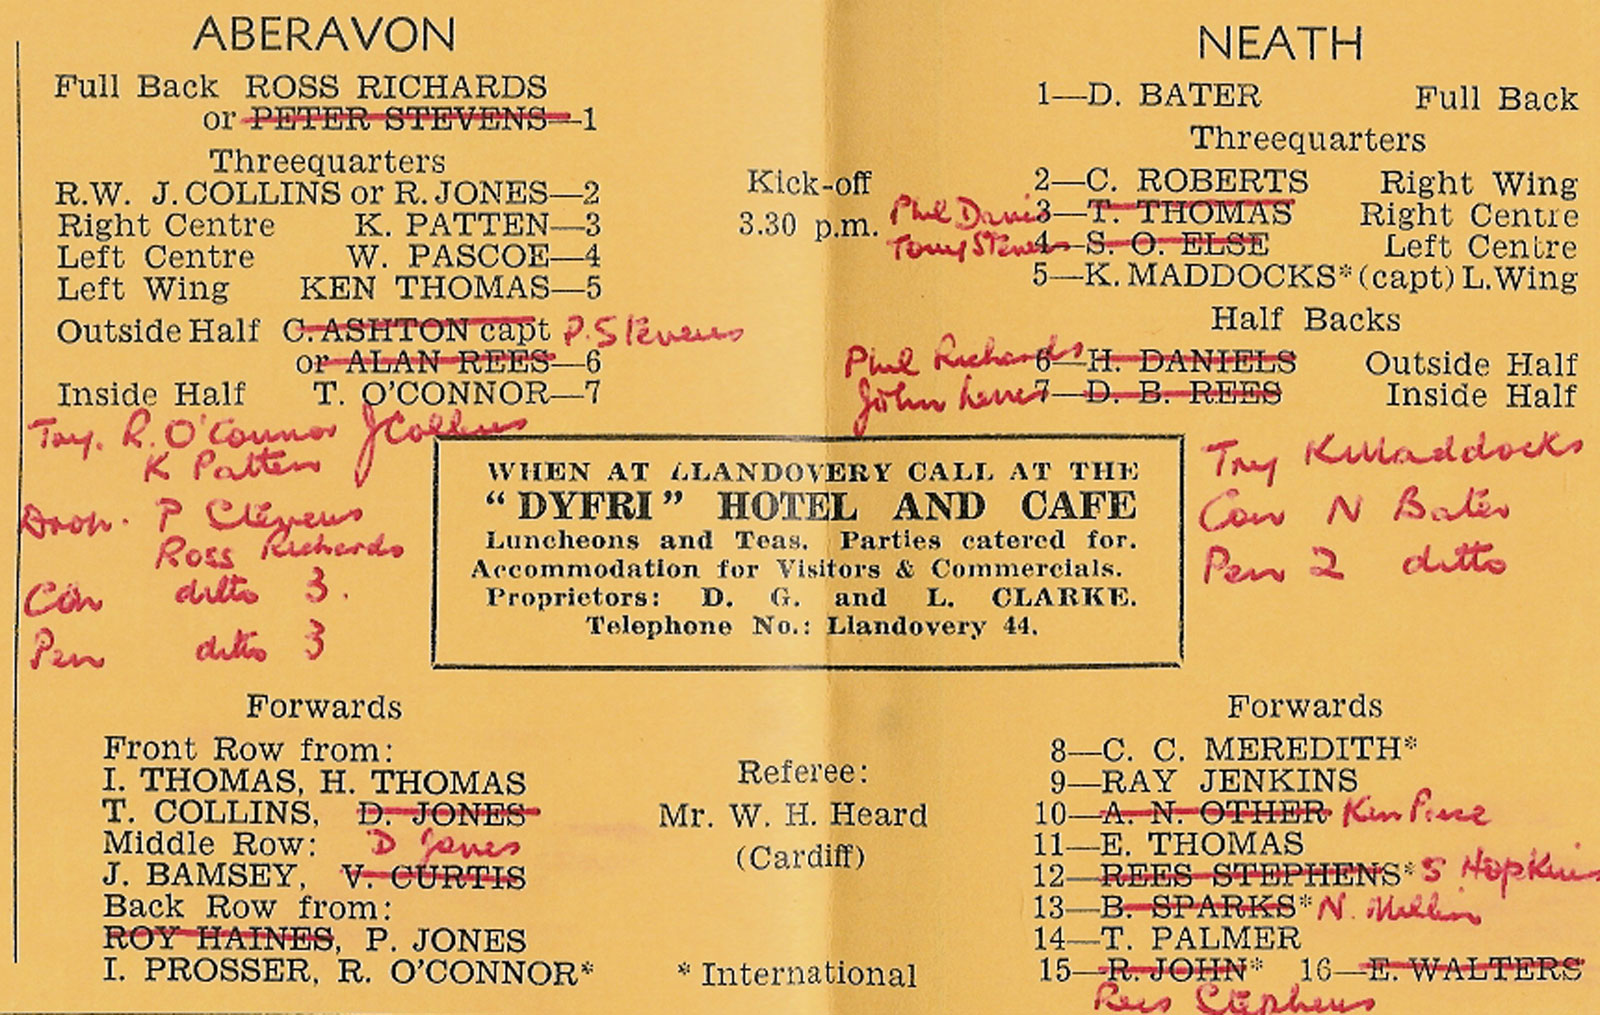 ABERAVON
Full Back ROSS RICHARDS
or PETER STEVENS—1
Threequarters
R.W. J. COLLINS or R. JONES—2
Right Centre K. PATTEN—3
Left Centre W. PASCOE—4
Left Wing KEN THOMAS—5
Outside Half C. ASHTON capt P. Stevens
or ALAN REES—6
Inside Half T. O'CONNOR—7
Try. R. O'Connor J Collins
K Patten
Drop. P Stevens
Ross Richards
Con ditto 3.
Pen ditto 3
Kick-off
3.30 p.m.
NEATH
1—D. BATER Full Back
Threequarters
2—C. ROBERTS Right Wing
Phil Davies 3—T. THOMAS Right Centre
Tony Stevens 4—S. O. ELSE Left Centre
5—K. MADDOCKS* (capt) L. Wing
Half Backs
Phil Richards 6—H. DANIELS Outside Half
John 7—D. B. REES Inside Half
Try K Maddocks
Con N Bater
Pen 2 ditto
WHEN AT LLANDOVERY CALL AT THE
"DYFRI" HOTEL AND CAFE
Luncheons and Teas. Parties catered for.
Accommodation for Visitors & Commercials.
Proprietors: D. G. and L. CLARKE.
Telephone No.: Llandovery 44.
Forwards
Front Row from:
I. THOMAS, H. THOMAS
T. COLLINS, D. JONES
Middle Row: D Jones
J. BAMSEY, V. CURTIS
Back Row from:
ROY HAINES, P. JONES
I. PROSSER, R. O'CONNOR*
Referee:
Mr. W. H. Heard
(Cardiff)
* International
Forwards
8—C. C. MEREDITH*
9—RAY JENKINS
10—A. N. OTHER Ken
11—E. THOMAS
12—REES STEPHENS* S Hopkins
13—B. SPARKS* N.
14—T. PALMER
15—R. JOHN* 16—E. WALTERS
Rees Stephens